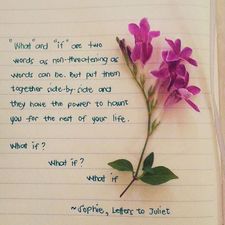 "What" and "if" are two
words as non-threatening as
words can be. But put them
together side-by-side and
they have the power to haunt
you for the rest of your life.
What if?
What if?
What if
~Sophie, Letters to Juliet